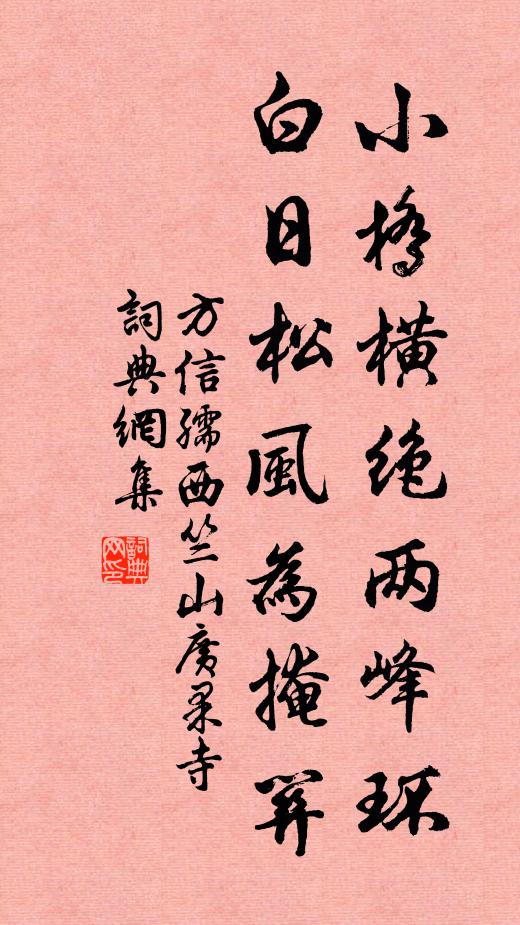 小橋橫絶两峰环
白日松風為掩關
方信孺西竺山廣果寺
詞典網集
詞典网印